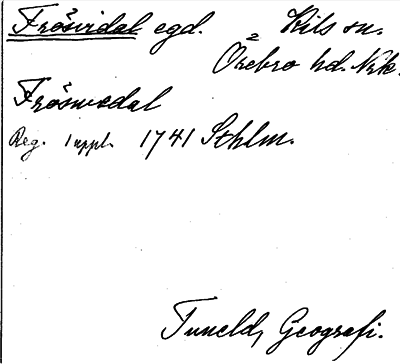 Frösvidal egd. Kils sn.
Örebro hd. Nrk.
Fröswedal
Reg. 1 uppl. 1741 Sthlm.
Tuneld, Geografi.